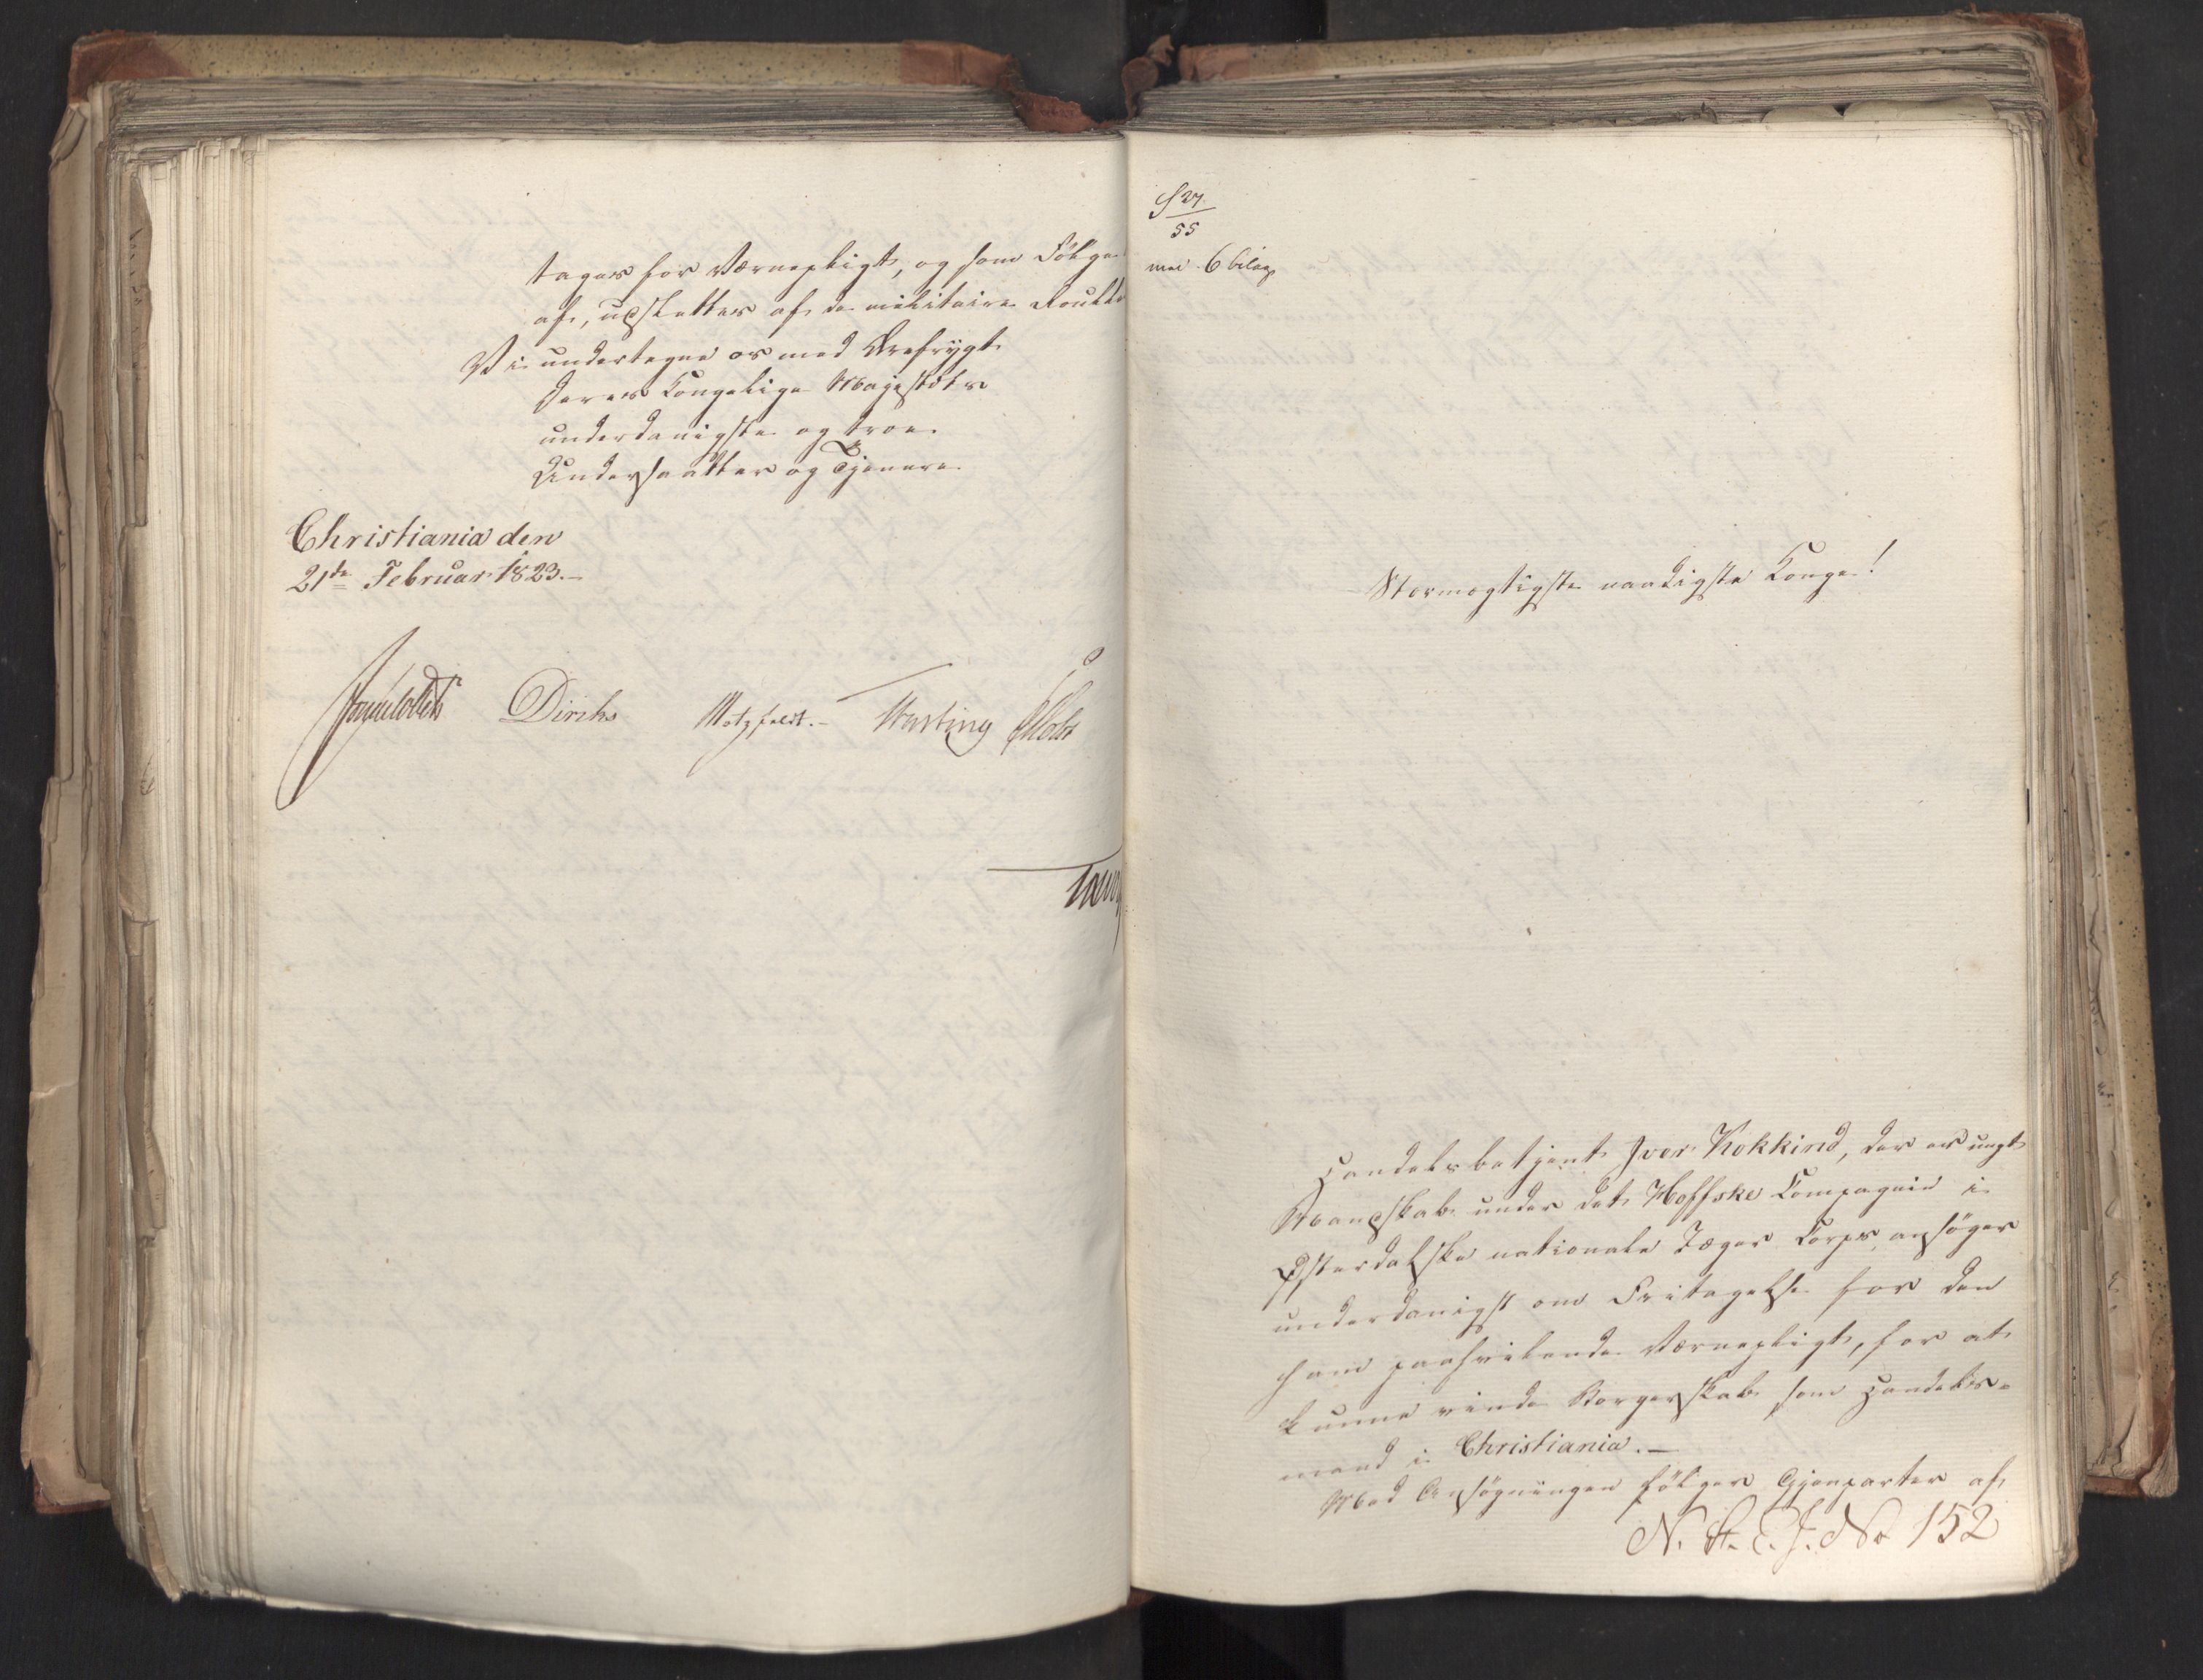 tages for Værnepligt, og som Fölge
af, udslettes af de militaire Roulle
Vi undertegne os med Ærefrygt
Deres Kongelige Majestæts
underdanigste og troe
Undersaatter og Tjenere
Christiania den
21de Februar 1823.-
Sommerhielm Diriks Motzfeldt.- Fasting Holst
27
55
med 6 bilag
Stormægtigste naadigste Konge!
Handelsbetjent Iver Kokkind, der er ungt
Mandskab under det Hoffske Compagnie i
Østerdalske nationale Jæger Corps, ansöger
underdanigst om Fritagelse for den
ham paahvilende Værnepligt, for at
kunne vinde Borgerskab som Handels-
mand i Christiania.-
Med Ansögningen fölger Gjenparter af
N. St. E. J. No 152